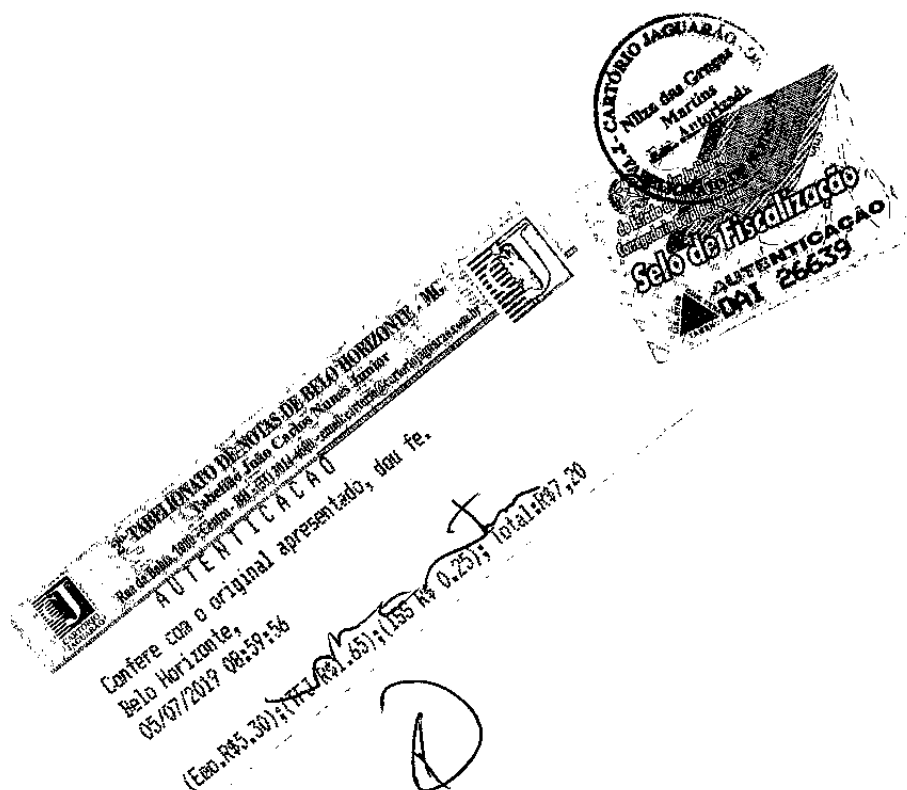 2º TABELIONATO DE NOTAS DE BELO HORIZONTE - MG
Tabelião João Carlos Nunes Junior
Rua da Bahia, 1000 - Centro - BH -
CARTÓRIO
JAGUARÃO
AUTENTICACAO
Confere com o original apresentado, dou fe.
Belo Horizonte,
05/07/2019 08:59:56
(Emo.R$5.30);(TFJ R$1.65);(ISS R$ 0.25); Total:R$7,20
CARTÓRIO JAGUARÃO
Nilza das Graças
Martins
Esc. Autorizada
Selo de Fiscalização
AUTENTICAÇÃO
DAI 26639